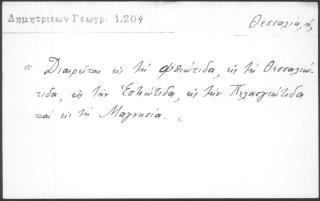 Δημητριεων Γεωγρ. 1.204
Θεσσαλία, ή,
" Διαιρεῖται εἰς τὴ Φθιώτιδα, εἰς τὴ Θεσσαλιώ-
τιδα, εἰς τὴν Ἑστιώτιδα, εἰς τὴν Πελασγιώτιδα
καὶ εἰς τὴ Μαγνησία. "